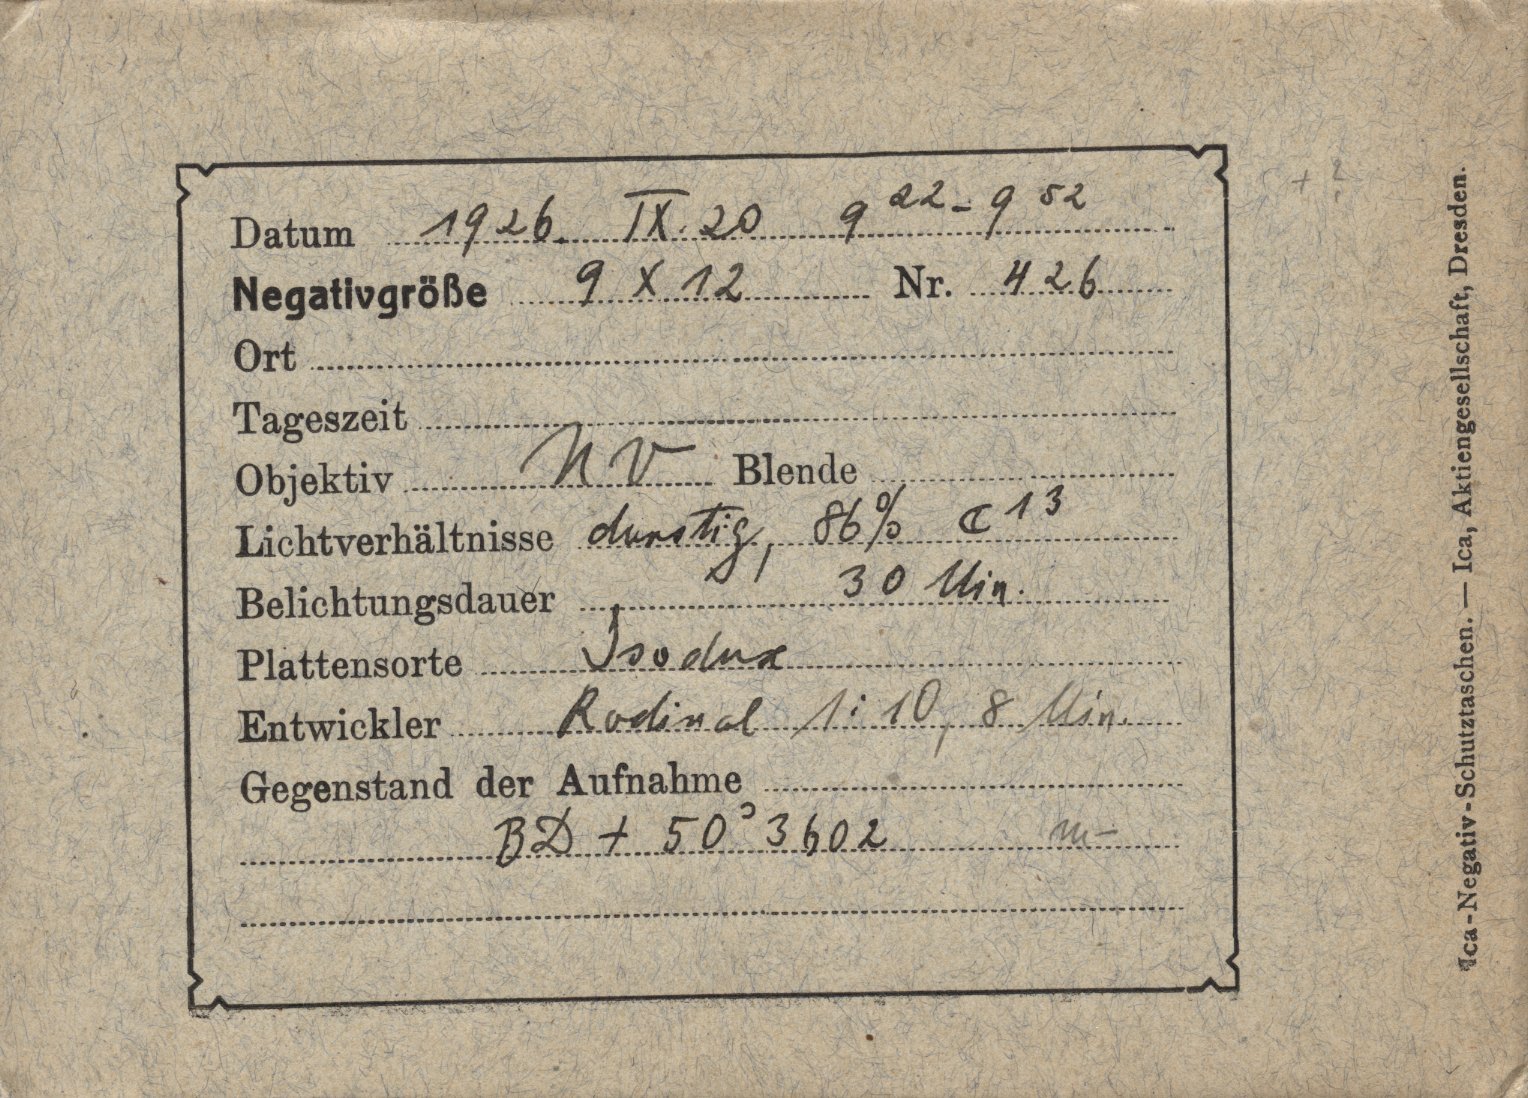 Datum 1926. IX. 20 9 22 - 9 52
Negativgröße 9 X 12 Nr. 426
Ort
Tageszeit
Objektiv NV Blende
Lichtverhältnisse dunstig, 86% ☾ 13
Belichtungsdauer 30 Min.
Plattensorte Isodux
Entwickler Rodinal 1:10, 8 Min.
Gegenstand der Aufnahme
BD + 50° 3602 m-
Ica-Negativ-Schutztaschen. — Ica, Aktiengesellschaft, Dresden.
+ ?